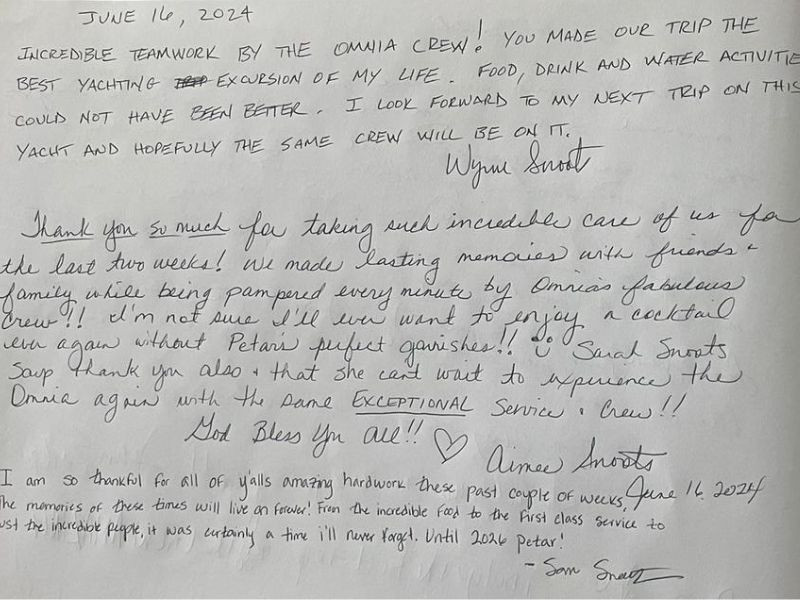 JUNE 16, 2024
INCREDIBLE TEAMWORK BY THE OMNIA CREW! YOU MADE OUR TRIP THE
BEST YACHTING EXCURSION OF MY LIFE. FOOD, DRINK AND WATER ACTIVITIE
COULD NOT HAVE BEEN BETTER. I LOOK FORWARD TO MY NEXT TRIP ON THIS
YACHT AND HOPEFULLY THE SAME CREW WILL BE ON IT.
Wynne Snoots
Thank you so much for taking such incredible care of us for
the last two weeks! We made lasting memories with friends &
family while being pampered every minute by Omnia's fabulous
crew!! I'm not sure I'll ever want to enjoy a cocktail
ever again without Petar's perfect garnishes!! Sarah Snoots
says thank you also & that she can't wait to experience the
Omnia again with the same EXCEPTIONAL Service & Crew!!
God Bless You All!! ♡
Aimee Snoots
June 16, 2024
I am so thankful for all of y'alls amazing hardwork these past couple of weeks,
The memories of these times will live on forever! From the incredible food to the first class service to
ust the incredible people, it was certainly a time i'll never forget. Until 2026 Petar!
- Sam Snoots